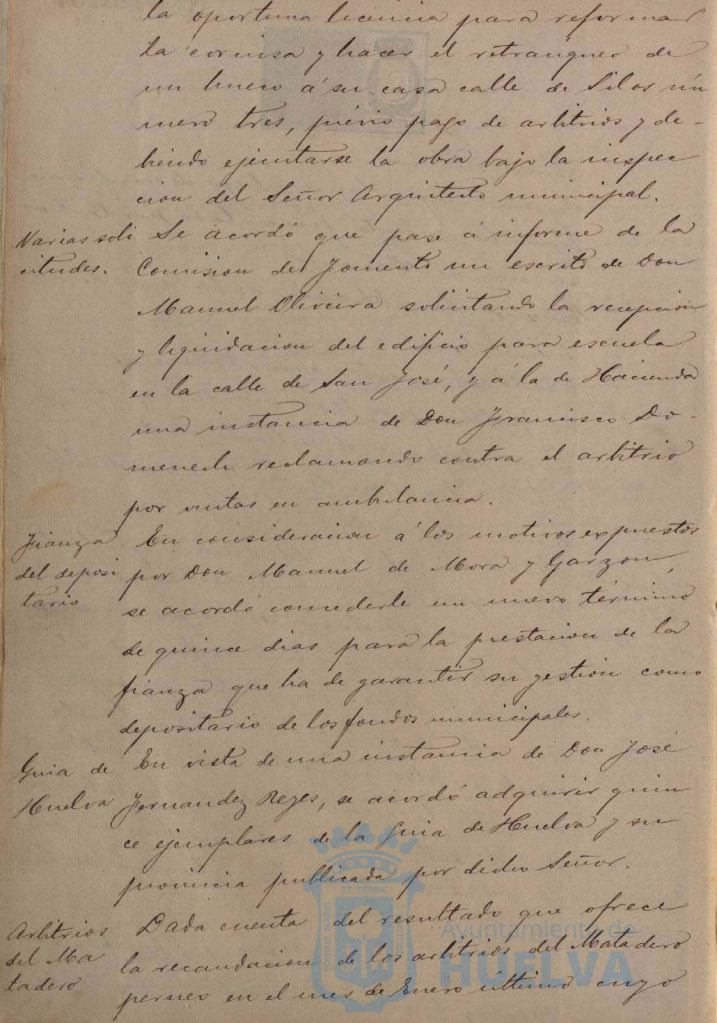 la oportuna licencia para reformar
la cornisa y hacer el retranqueo de
un hueco á su casa calle de Silos nú
mero tres, prévio pago de arbitrios y de-
biendo ejecutarse la obra bajo la inspec
cion del Señor Arquitecto municipal.
Varias soli
citudes.
Se acordó que pase á informe de la
Comision de Fomento un escrito de Don
Manuel Oliveira solicitando la recepcion
y liquidacion del edificio para escuela
en la calle de San José, y á la de Hacienda
una instancia de Don Francisco Do-
menech reclamando contra el arbitrio
por ventas en ambulancia.
Fianza
del deposi
tario
En consideracion á los motivos expuestos
por Don Manuel de Mora y Garzon,
se acordó concederle un nuevo término
de quince dias para la prestacion de la
fianza que ha de garantir su gestion como
depositario de los fondos municipales.
Guia de
Huelva
En vista de una instancia de Don José
Fernandez Reyes, se acordó adquirir quin
ce ejemplares de la Guia de Huelva y su
provincia publicada por dicho Señor.
Arbitrios
del Ma
tadero
Dada cuenta del resultado que ofrece
la recaudacion de los arbitrios del Matadero
en el mes de Enero último cuyo
Ayuntamiento de
HUELVA